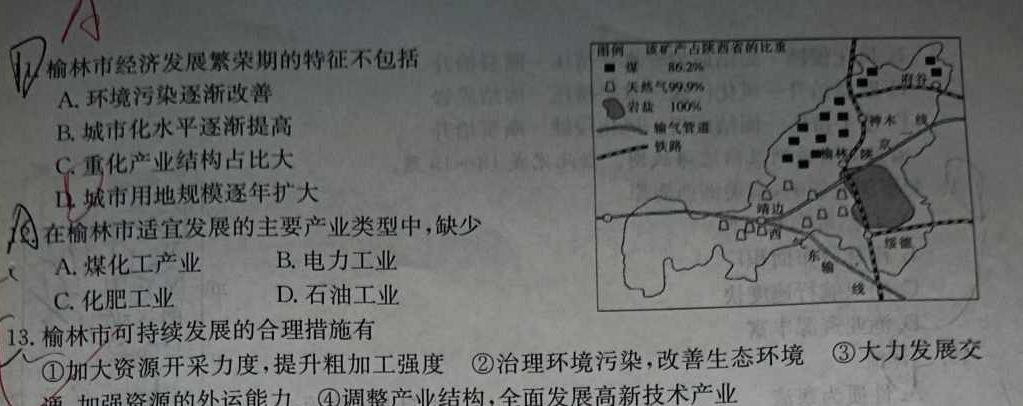 榆林市经济发展繁荣期的特征不包括
A. 环境污染逐渐改善
B. 城市化水平逐渐提高
C. 重化产业结构占比大
D. 城市用地规模逐年扩大
在榆林市适宜发展的主要产业类型中,缺少
A. 煤化工产业 B. 电力工业
C. 化肥工业 D. 石油工业
13. 榆林市可持续发展的合理措施有
①加大资源开采力度,提升粗加工强度 ②治理环境污染,改善生态环境 ③大力发展交
通,加强资源的外运能力 ④调整产业结构,全面发展高新技术产业
图例 该矿产占陕西省的比重
煤 86.2%
天然气99.9%
岩盐 100%
输气管道
铁路
府谷
神木
线
京
陕
榆林
靖边
西
气
东
输
线
绥德